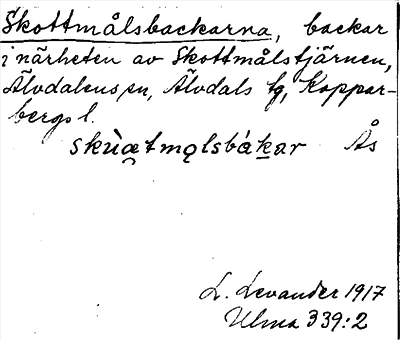 Skottmålsbackarna, backar
i närheten av Skottmålstjärnen,
Älvdalens sn, Älvdals tg, Koppar-
bergs l.
skùætmǫlsbákar Ås
L. Levander 1917
Ulma 339:2